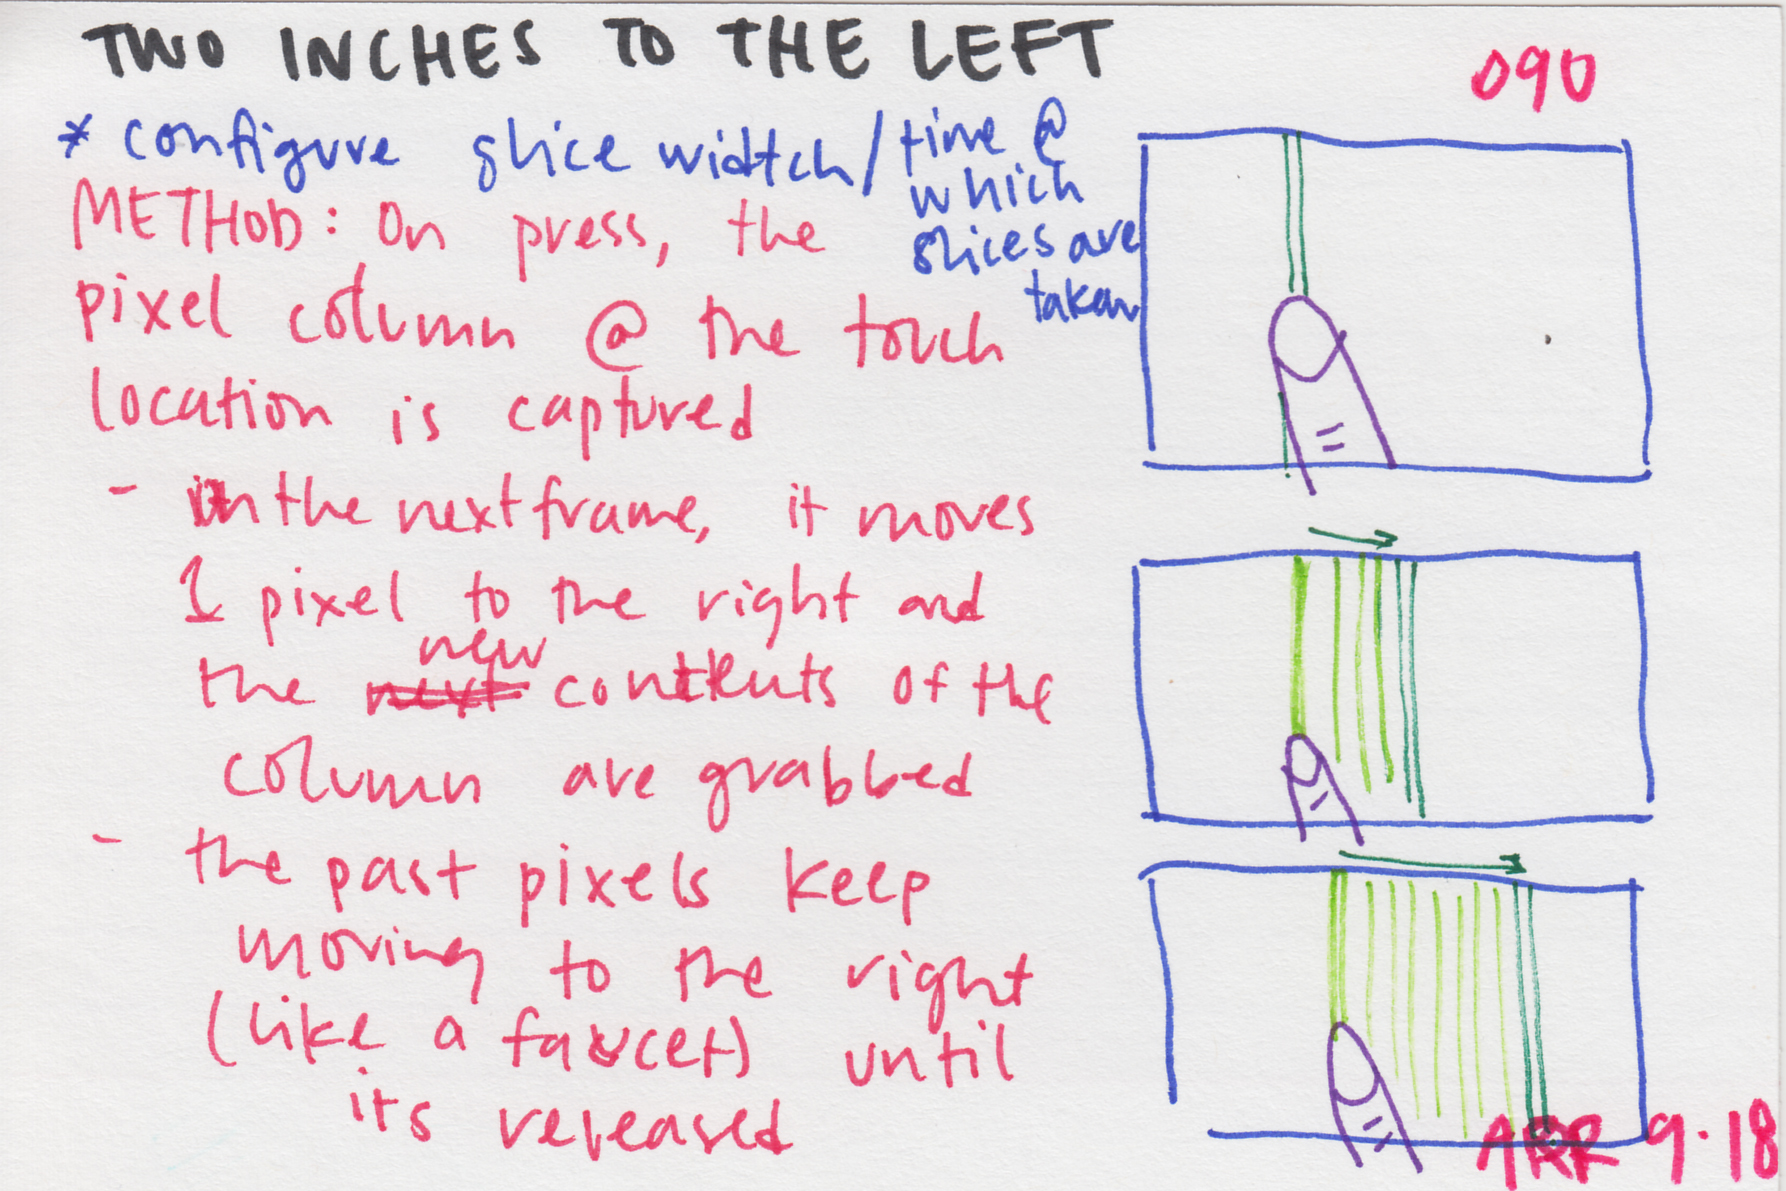 TWO INCHES TO THE LEFT
090
* configure slice widtch / time @
which
slices are
taken
METHOD: On press, the
pixel column @ the touch
location is captured
- in the next frame, it moves
1 pixel to the right and
new
the next contents of the
column are grabbed
- the past pixels keep
moving to the right
(like a faucet) until
its released
ARR 9.18